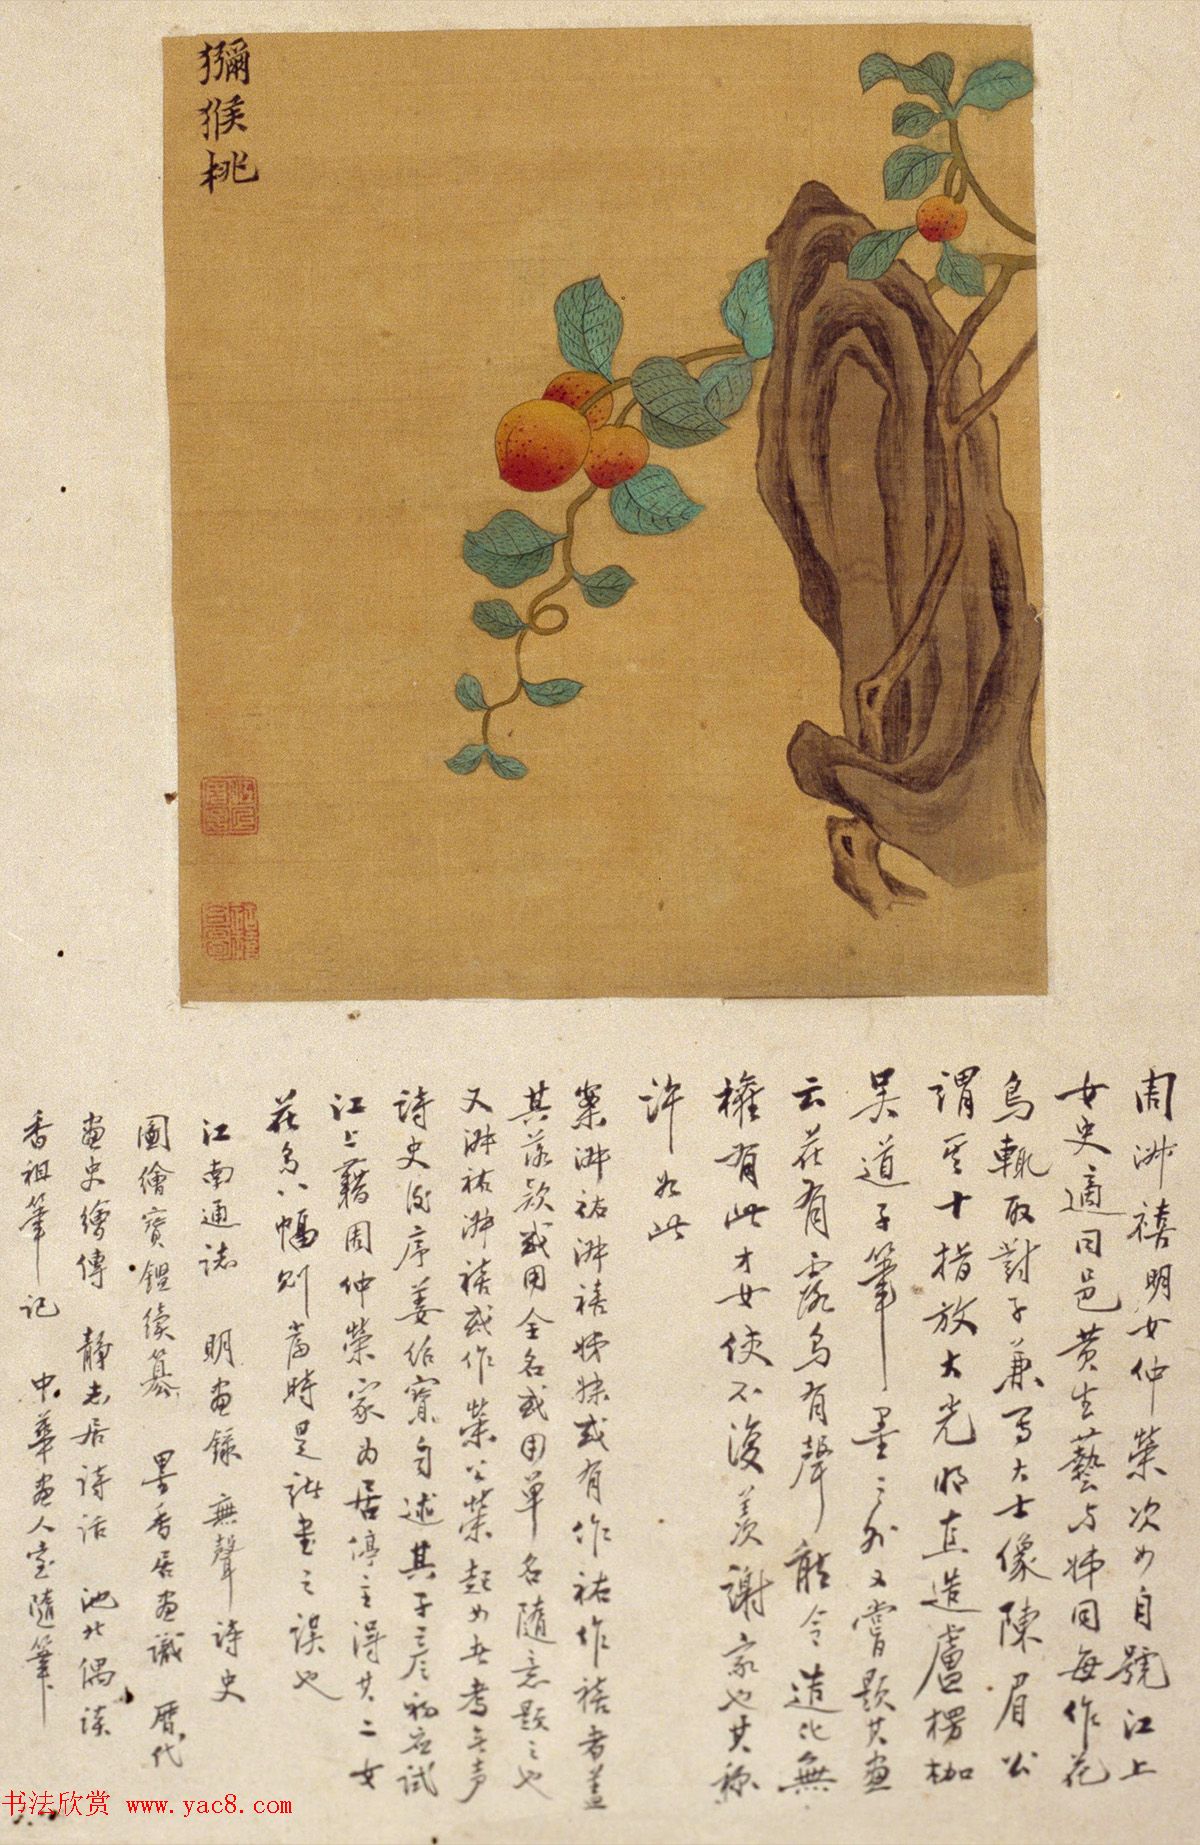 獼猴桃
周淑禧明女仲榮次女自號江上
女史適同邑黄生藝与姊同每作花
鳥輒取對子兼寫大士像陳眉公
謂其十指放大光明直造盧楞枷
吴道子筆墨之外又嘗題其畫
云花有露鳥有聲能令造化無
權有此才女使不復羡謝家也其称
許如此
案淑祜淑禧姊妹或有作祜作禧者蓋
其落款或用全名或用單名隨意題之也
又淑祜淑禧或作榮公榮起女
詩史後序姜紹寳自述其子彦初應試
江上藉周仲榮家為居停主得其二女
花鳥八幅則當時是誌畫之误也
江南通誌 明畫録 無聲詩史
圖繪寳鑑續纂 墨香居畫識 曆代
畫史繪傳 静志居詩话 池北偶谈
香祖筆记 中華畫人室隨筆
书法欣赏 www.yac8.com